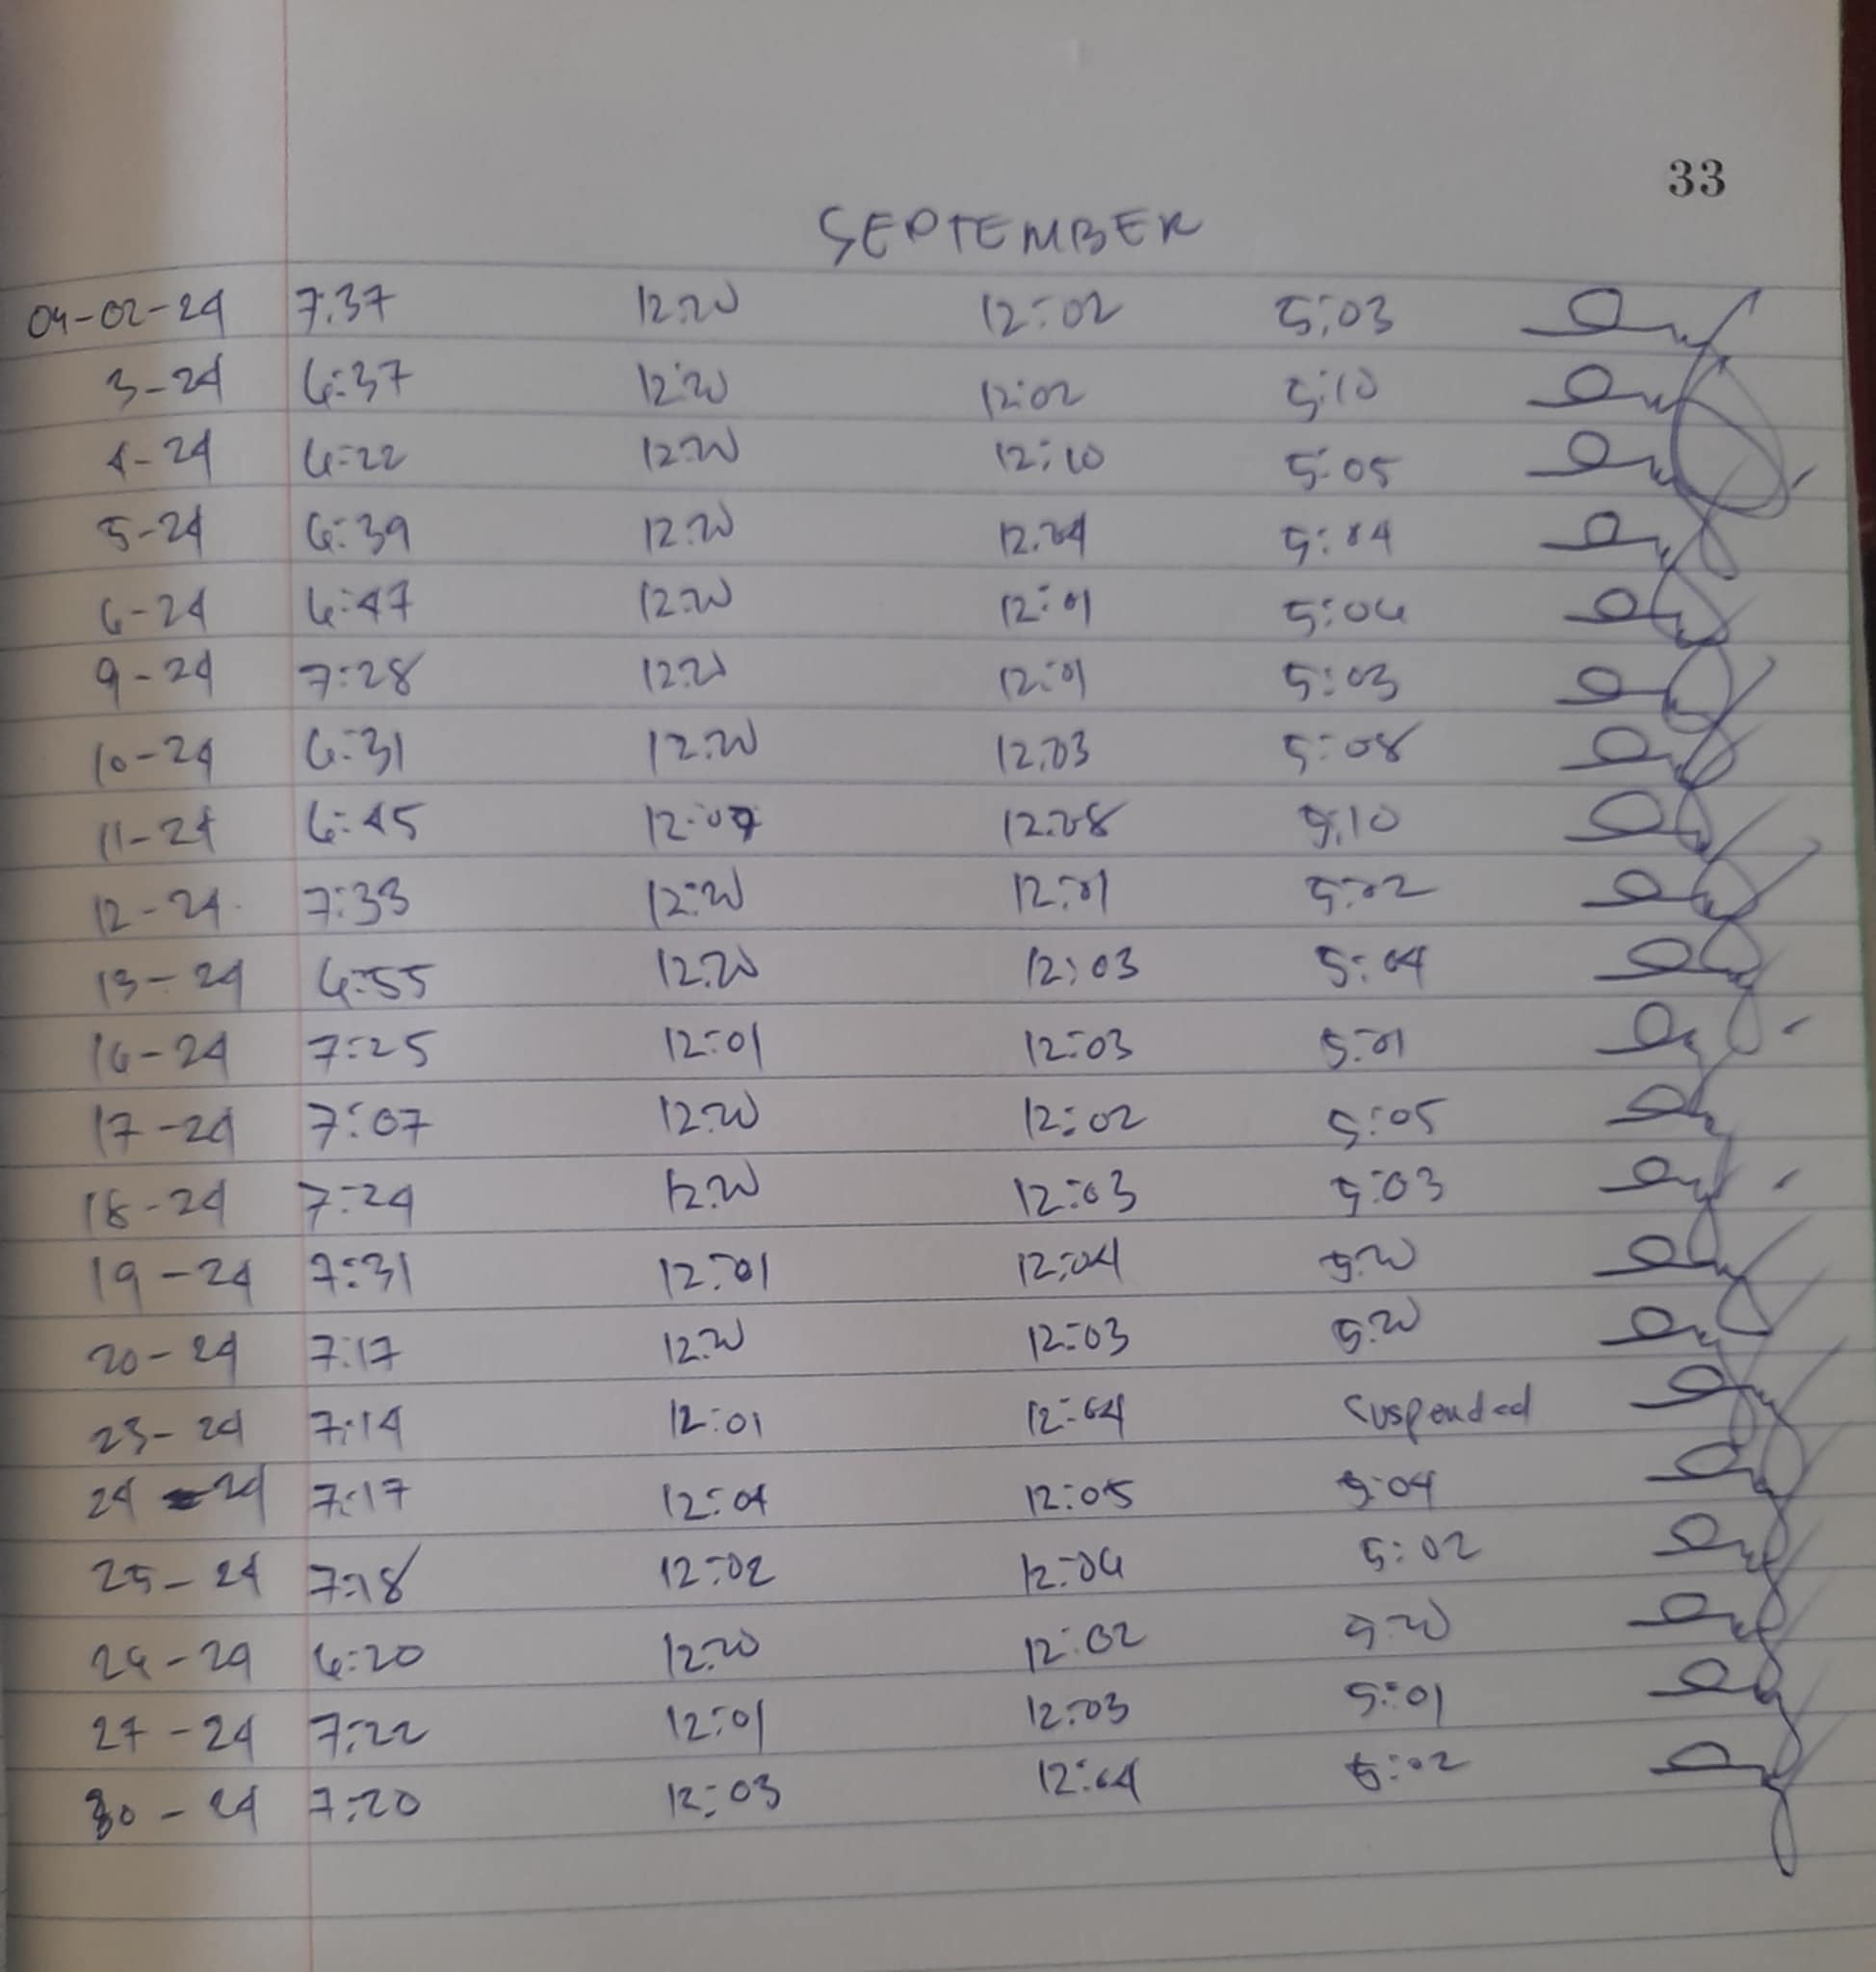 33
SEPTEMBER
09-02-24 7:37 12:00 12:02 5:03
3-24 6:37 12:00 12:02 5:10
4-24 6:22 12:00 12:10 5:05
5-24 6:39 12:00 12:04 5:04
6-24 6:47 12:00 12:01 5:06
9-24 7:28 12:00 12:01 5:03
10-24 6:31 12:00 12:03 5:08
11-24 6:45 12:07 12:08 5:10
12-24 7:33 12:00 12:01 5:02
13-24 6:55 12:00 12:03 5:04
16-24 7:25 12:01 12:03 5:01
17-24 7:07 12:00 12:02 5:05
18-24 7:24 12:00 12:03 5:03
19-24 7:31 12:01 12:04 5:00
20-24 7:17 12:00 12:03 5:00
23-24 7:14 12:01 12:04 Suspended
24-24 7:17 12:04 12:05 5:04
25-24 7:18 12:02 12:06 5:02
26-24 6:20 12:00 12:02 5:00
27-24 7:22 12:01 12:03 5:01
30-24 7:20 12:03 12:04 5:02